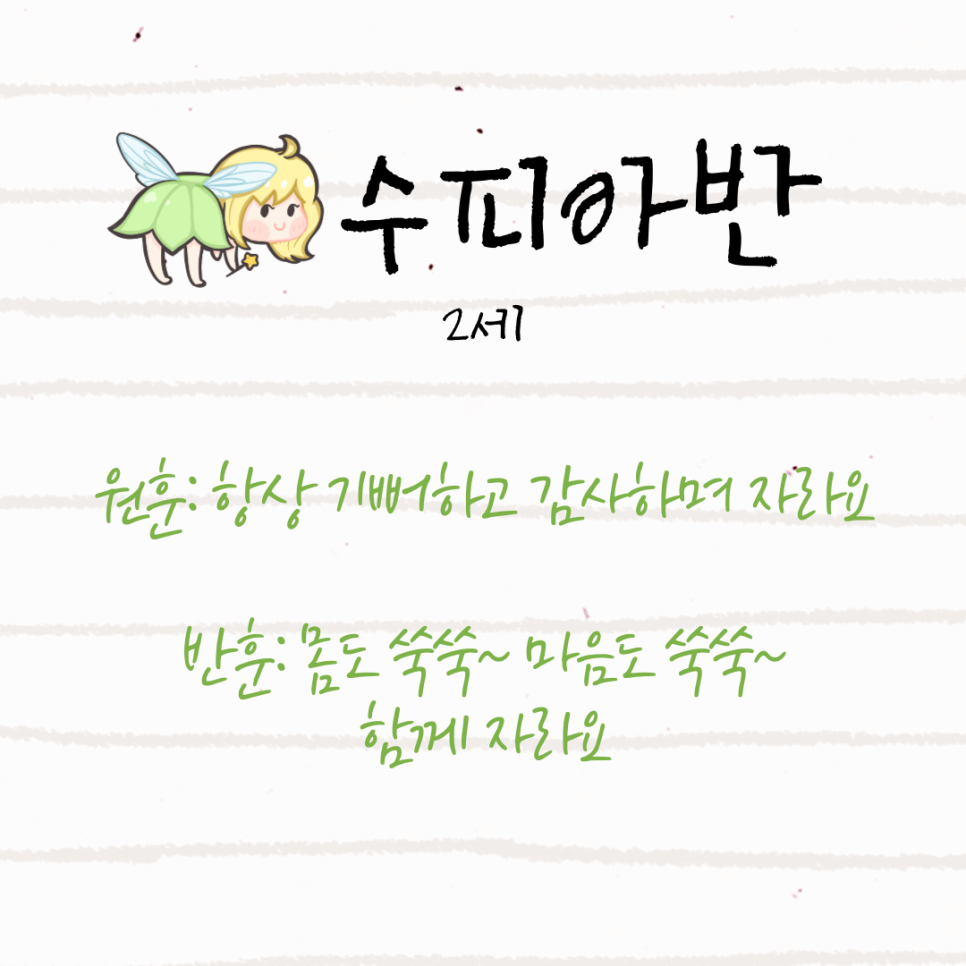 수피아반
2세
원훈: 항상 기뻐하고 감사하며 자라요
반훈: 몸도 쑥쑥~ 마음도 쑥쑥~
함께 자라요